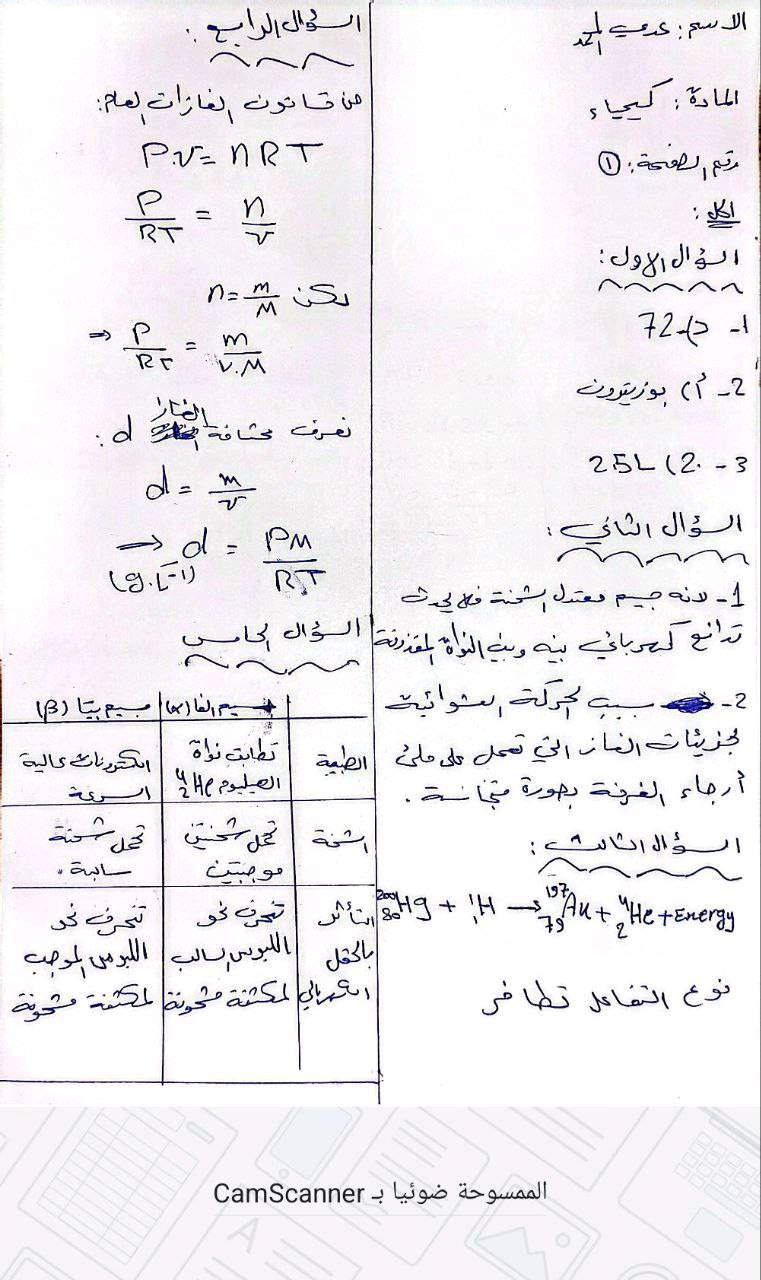 الاسم: عدي
المادة: كيمياء
رقم الصفحة: ①
الحل:
السؤال الاول:
1- د) 72
2- أ) بوزيترون
3- 2) 25L
السؤال الثاني:
1- لانه جسيم معتدل الشحنة فلا يحدث
تدافع كهربائي بينه وبين النواة المقذوفة
2- بسبب الحركة العشوائية
لجزيئات الغاز التي تعمل على ملئ
أرجاء الغرفة بصورة متجانسة.
السؤال الثالث:
²⁰⁰₈₀Hg + ¹₁H → ¹⁹⁷₇₉Au + ⁴₂He + Energy
نوع التفاعل تطافر
السؤال الرابع:
من قانون الغازات العام:
P.v = nRT
P/RT = n/v
لكن n = m/M
⇒ P/RT = m/v.M
نعرف كثافة الغاز d:
d = m/v
⇒ d = PM/RT
(g.L⁻¹)
السؤال الخامس
جسيم الفا (α) جسيم بيتا (β)
الطبيعة تطابق نواة الكترونات عالية
الهيليوم ⁴₂He السرعة
الشحنة تحمل شحنتين تحمل شحنة
موجبتين سالبة.
التأثر تنحرف نحو تنحرف نحو
بالحقل اللبوس السالب اللبوس الموجب
الكهربائي لمكثفة مشحونة لمكثفة مشحونة
الممسوحة ضوئيا بـ CamScanner